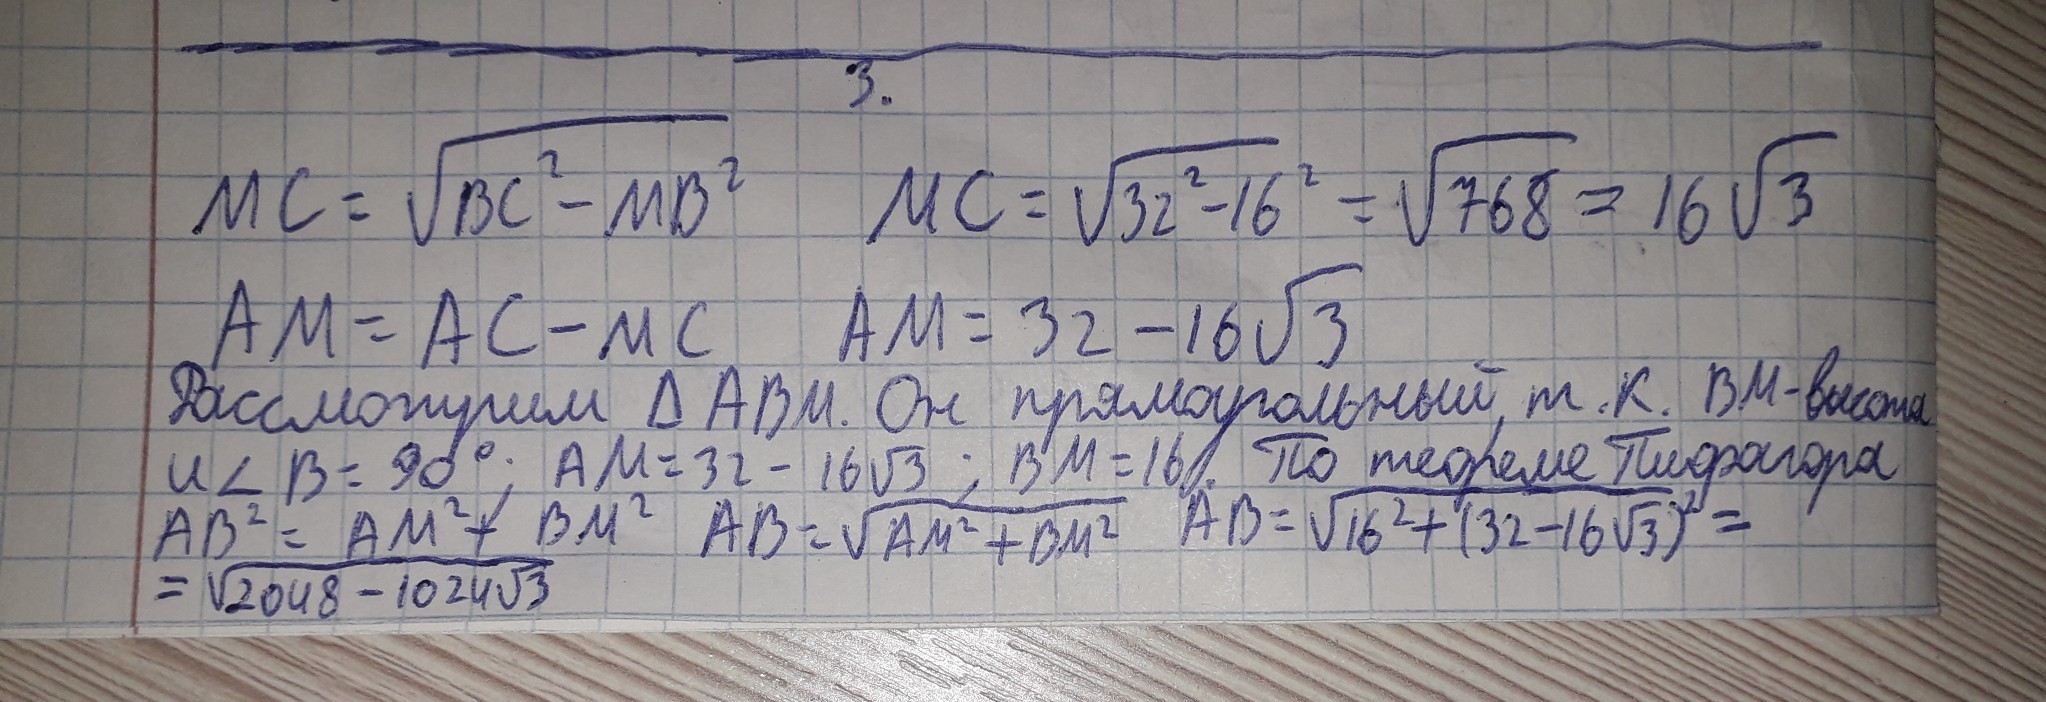 3.
MC = √BC² - MB² MC = √32² - 16² = √768 = 16√3
AM = AC - MC AM = 32 - 16√3
Рассмотрим Δ ABM. Он прямоугольный, т.к. BM - высота
и ∠ B = 90°; AM = 32 - 16√3; BM = 16. По теореме Пифагора
AB² = AM² + BM² AB = √AM² + BM² AB = √16² + (32 - 16√3)² =
= √2048 - 1024√3